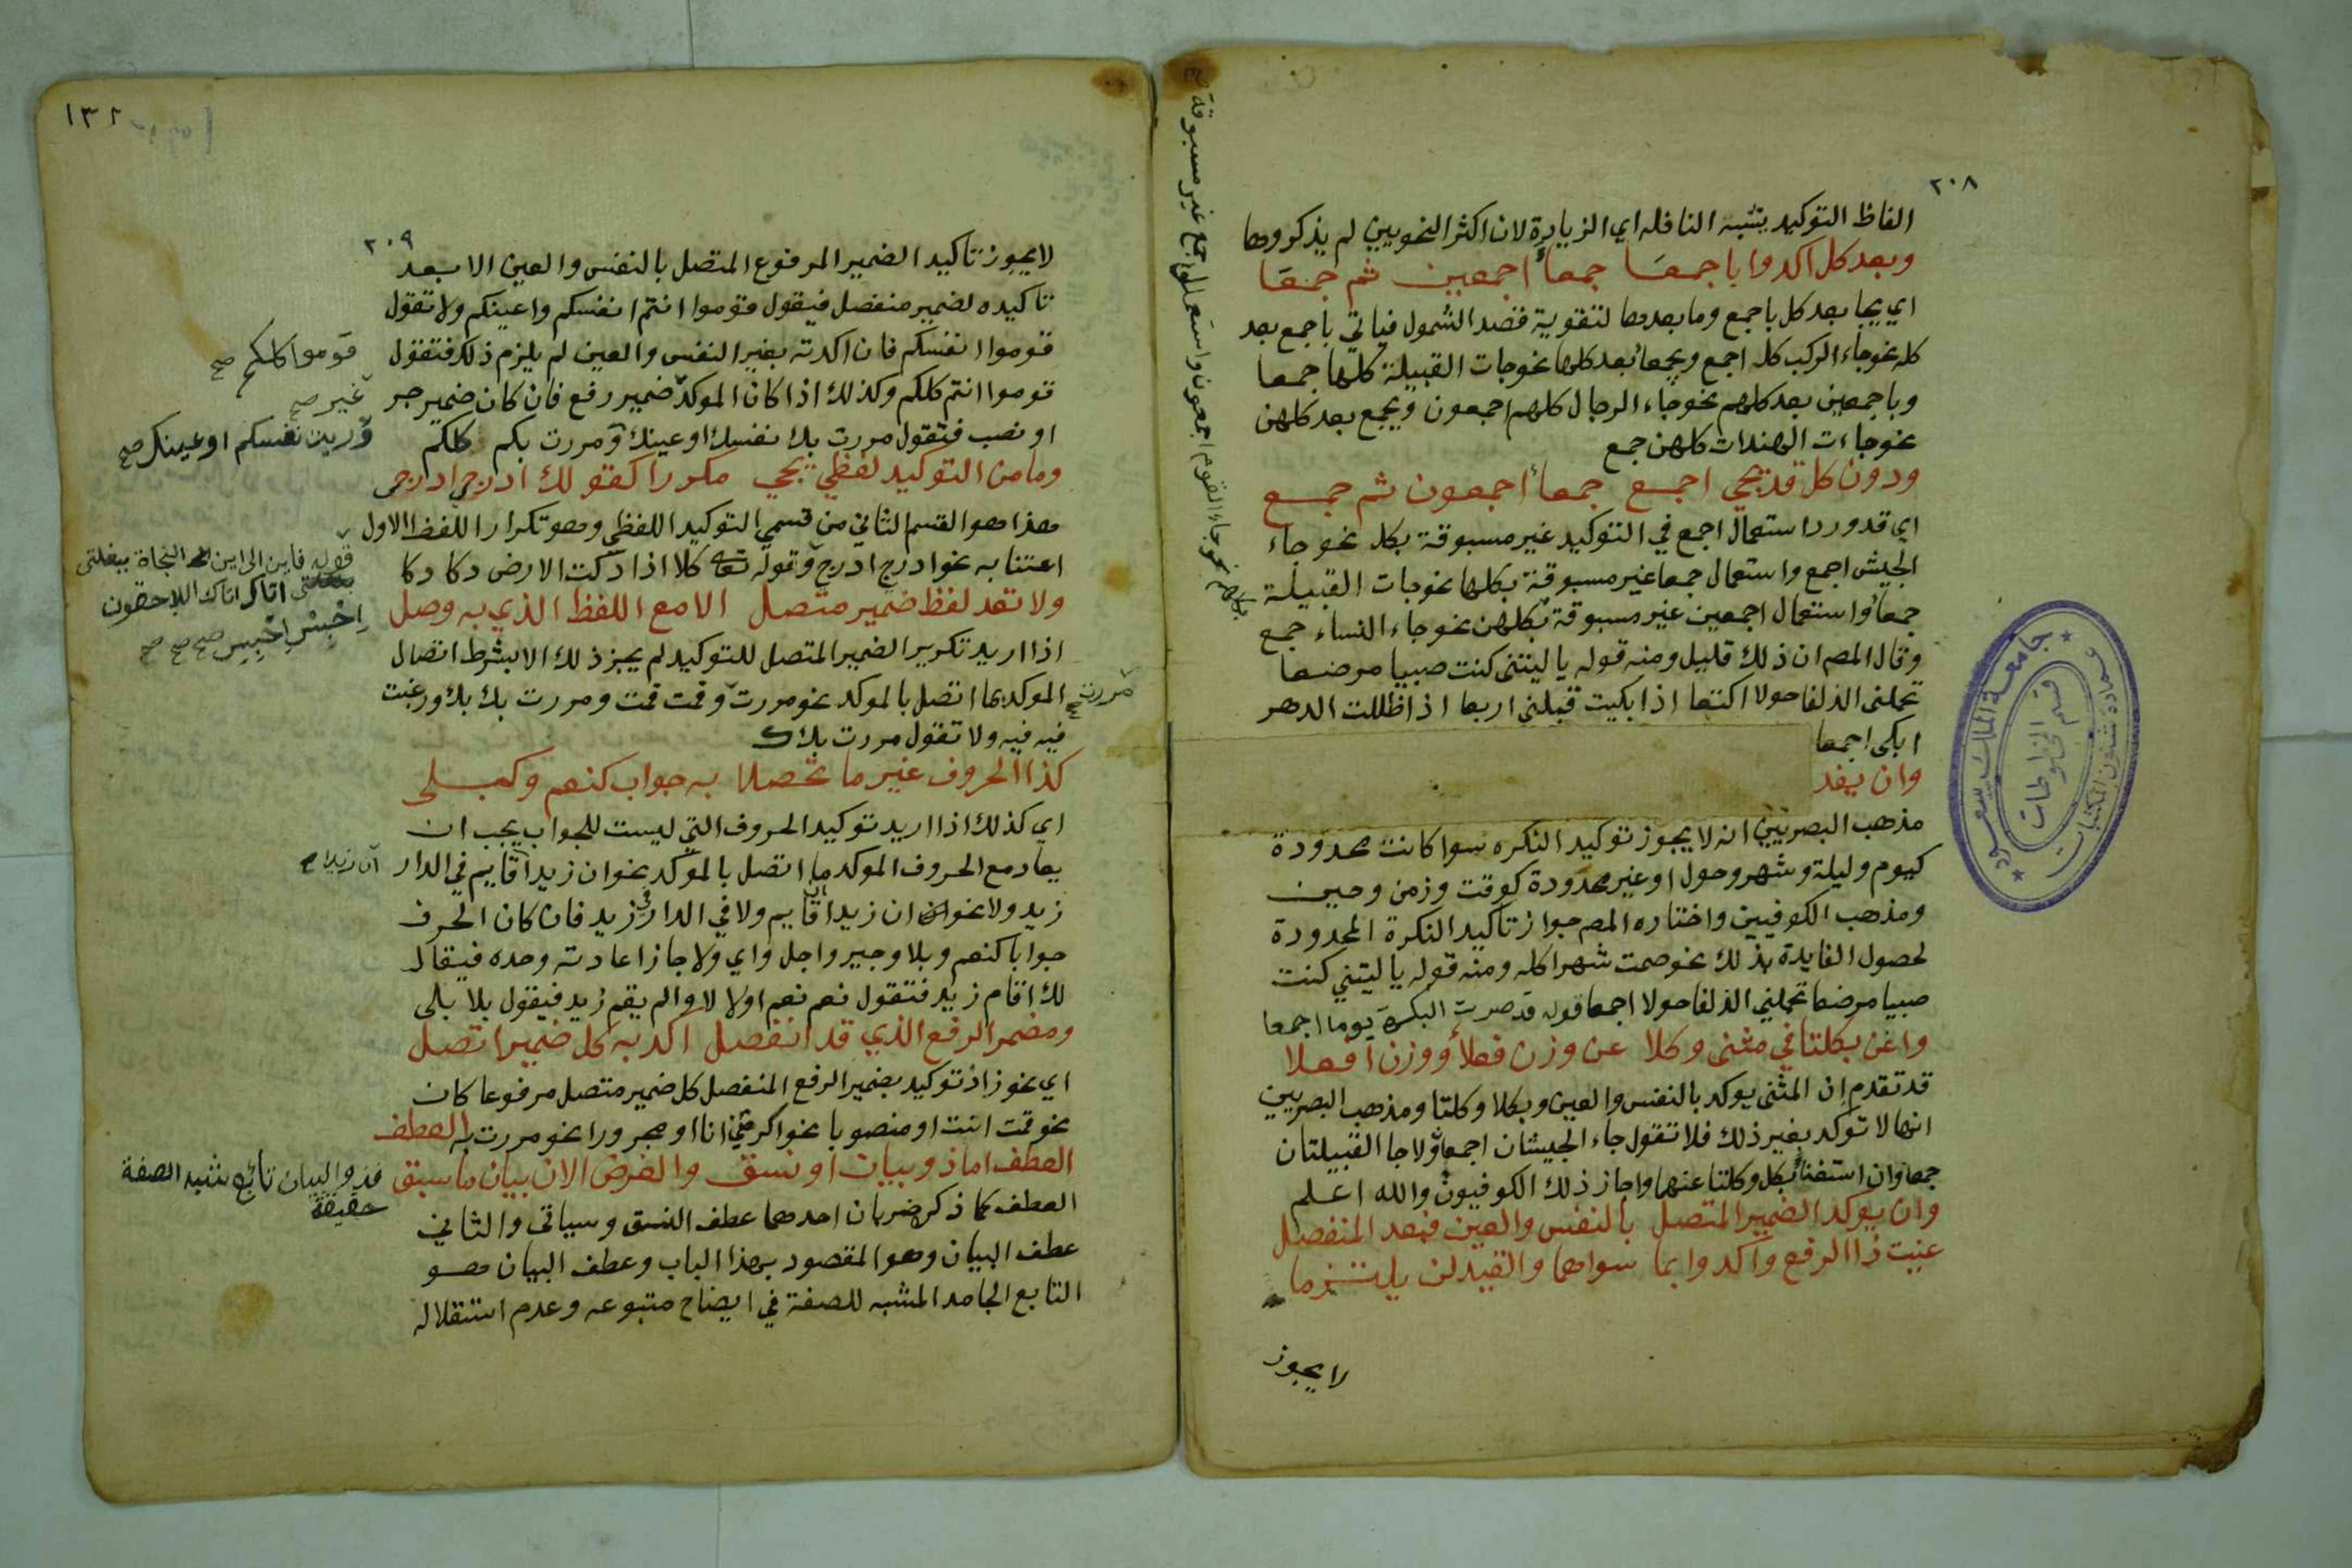 ٢٠٨
الفاظ التوكيد يشبه النافله اي الزيادة لان اكثر النحويين لم يذكروها
وبعد كل اكدوا باجمعا جمعاء اجمعين ثم جمعا
اي يجا بعد كل باجمع وما بعدها لتقوية قصد الشمول فياتي باجمع بعد
كله نحو جاء الركب كله اجمع وبجمعاء بعد كلها نحو جات القبيلة كلها جمعا
وباجمعين بعد كلهم نحو جاء الرجال كلهم اجمعون وبجمع بعد كلهن
نحو جاءت الهندات كلهن جمع
ودون كل قد يجي اجمع جمعاء اجمعون ثم جمع
اي قد ورد استعمال اجمع في التوكيد غير مسبوقة بكل نحو جاء
الجيش اجمع واستعمال جمعا غير مسبوقة بكلها نحو جات القبيلة
جمعاء واستعمال اجمعين غير مسبوقة بكلهن نحو جاء النساء جمع
وقال المصم ان ذلك قليل ومنه قوله يا ليتني كنت صبيا مرضعا
تحملني الذلفا حولا اكتعا اذا بكيت قبلتني اربعا اذا ظللت الدهر
ابكي اجمعا
وان يفد
مذهب البصريين انه لا يجوز توكيد النكره سوا كانت محدودة
كيوم وليلة وشهر وحول او غير محدودة كوقت وزمن وحين
ومذهب الكوفيين واختاره المصم جواز تاكيد النكرة المحدودة
لحصول الفايدة بذلك نحو صمت شهرا كله ومنه قوله يا ليتني كنت
صبيا مرضعا تحملني الذلفا حولا اجمعا قوله قد صرت البكرة يوما اجمعا
واغن بكلتا في مثنى وكلا عن وزن فعلاء ووزن افعلا
قد تقدم ان المثنى يوكد بالنفس والعين وبكلا وكلتا ومذهب البصريين
انها لا توكد بغير ذلك فلا تقول جاء الجيشان اجمعان ولا جا القبيلتان
جمعاوان استغناء بكل وكلتا عنهما واجاز ذلك الكوفيون والله اعلم
وان يوكد الضمير المتصل بالنفس والعين فبعد المنفصل
عنيت ذا الرفع واكدوا بما سواهما والقيد لن يلتزما
لا يجوز
واستعمال اجمع غير مسبوقة
بكلهم نحو جاء القوم اجمعون
جامعة الملك سعود
عمادة شئون المكتبات
قسم المخطوطات
١٣٢
٢٠٩
لا يجوز تاكيد الضمير المرفوع المتصل بالنفس والعين الا بعد
تاكيده لضمير منفصل فيقول قوموا انتم انفسكم واعينكم ولا تقول
قوموا انفسكم فان اكدته بغير النفس والعين لم يلزم ذلك فتقول
قوموا كلكم صح
قوموا انتم كلكم وكذلك اذا كان الموكد ضمير رفع فان كان ضمير جر
غير صح
او نصب فتقول مررت بك نفسك او عينك ومررت بكم كلكم
وريت نفسكم او عينكم صح
وما من التوكيد لفظي يجي مكررا كقولك ادرجي ادرجي
هذا هو القسم الثاني من قسمي التوكيد اللفظي وهو تكرار اللفظ الاول
اعتنا به نحو ادرج ادرج وقوله تعا كلا اذا دكت الارض دكا دكا
قوله فاين الى اين النجاة ببغلتي
اتاك اتاك اللاحقون
احبس احبس صح صح صح
ولا تعد لفظ ضمير متصل الا مع اللفظ الذي به وصل
اذا اريد تكرير الضمير المتصل للتوكيد لم يجز ذلك الا بشرط اتصال
الموكد بما اتصل بالموكد نحو مررت وقمت قمت ومررت بك بك ورغبت
مررت صح
فيه فيه ولا تقول مررت بكك
كذا الحروف غير ما تحصلا به جواب كنعم وكبلى
اي كذلك اذا اريد توكيد الحروف التي ليست للجواب يجب ان
يعاد مع الحروف الموكد ما اتصل بالموكد نحو ان زيدا قايم في الدار
ان زيدا صح
زيد ولا نحو ان ان زيدا قايم ولا في الدار في زيد فان كان الحرف
جوابا كنعم وبلا وجير واجل واي ولا جاز اعادته وحده فيقال
لك اقام زيد فتقول نعم نعم او لا لا والم يقم زيد فيقول بلا بلى
ومضمر الرفع الذي قد انفصل اكد به كل ضمير اتصل
اي نحو زاد توكيد بضمير الرفع المنفصل كل ضمير متصل مرفوعا كان
نحو قمت انت او منصوبا نحو اكرمتني انا او مجرورا نحو مررت به العطف
العطف اما ذو بيان او نسق والغرض الان بيان ما سبق
فذو البيان تابع شبه الصفة
حقيقة
العطف كما ذكر ضربان احدهما عطف النسق وسياتي والثاني
عطف البيان وهو المقصود بهذا الباب وعطف البيان هو
التابع الجامد المشبه للصفة في ايضاح متبوعه وعدم استقلاله